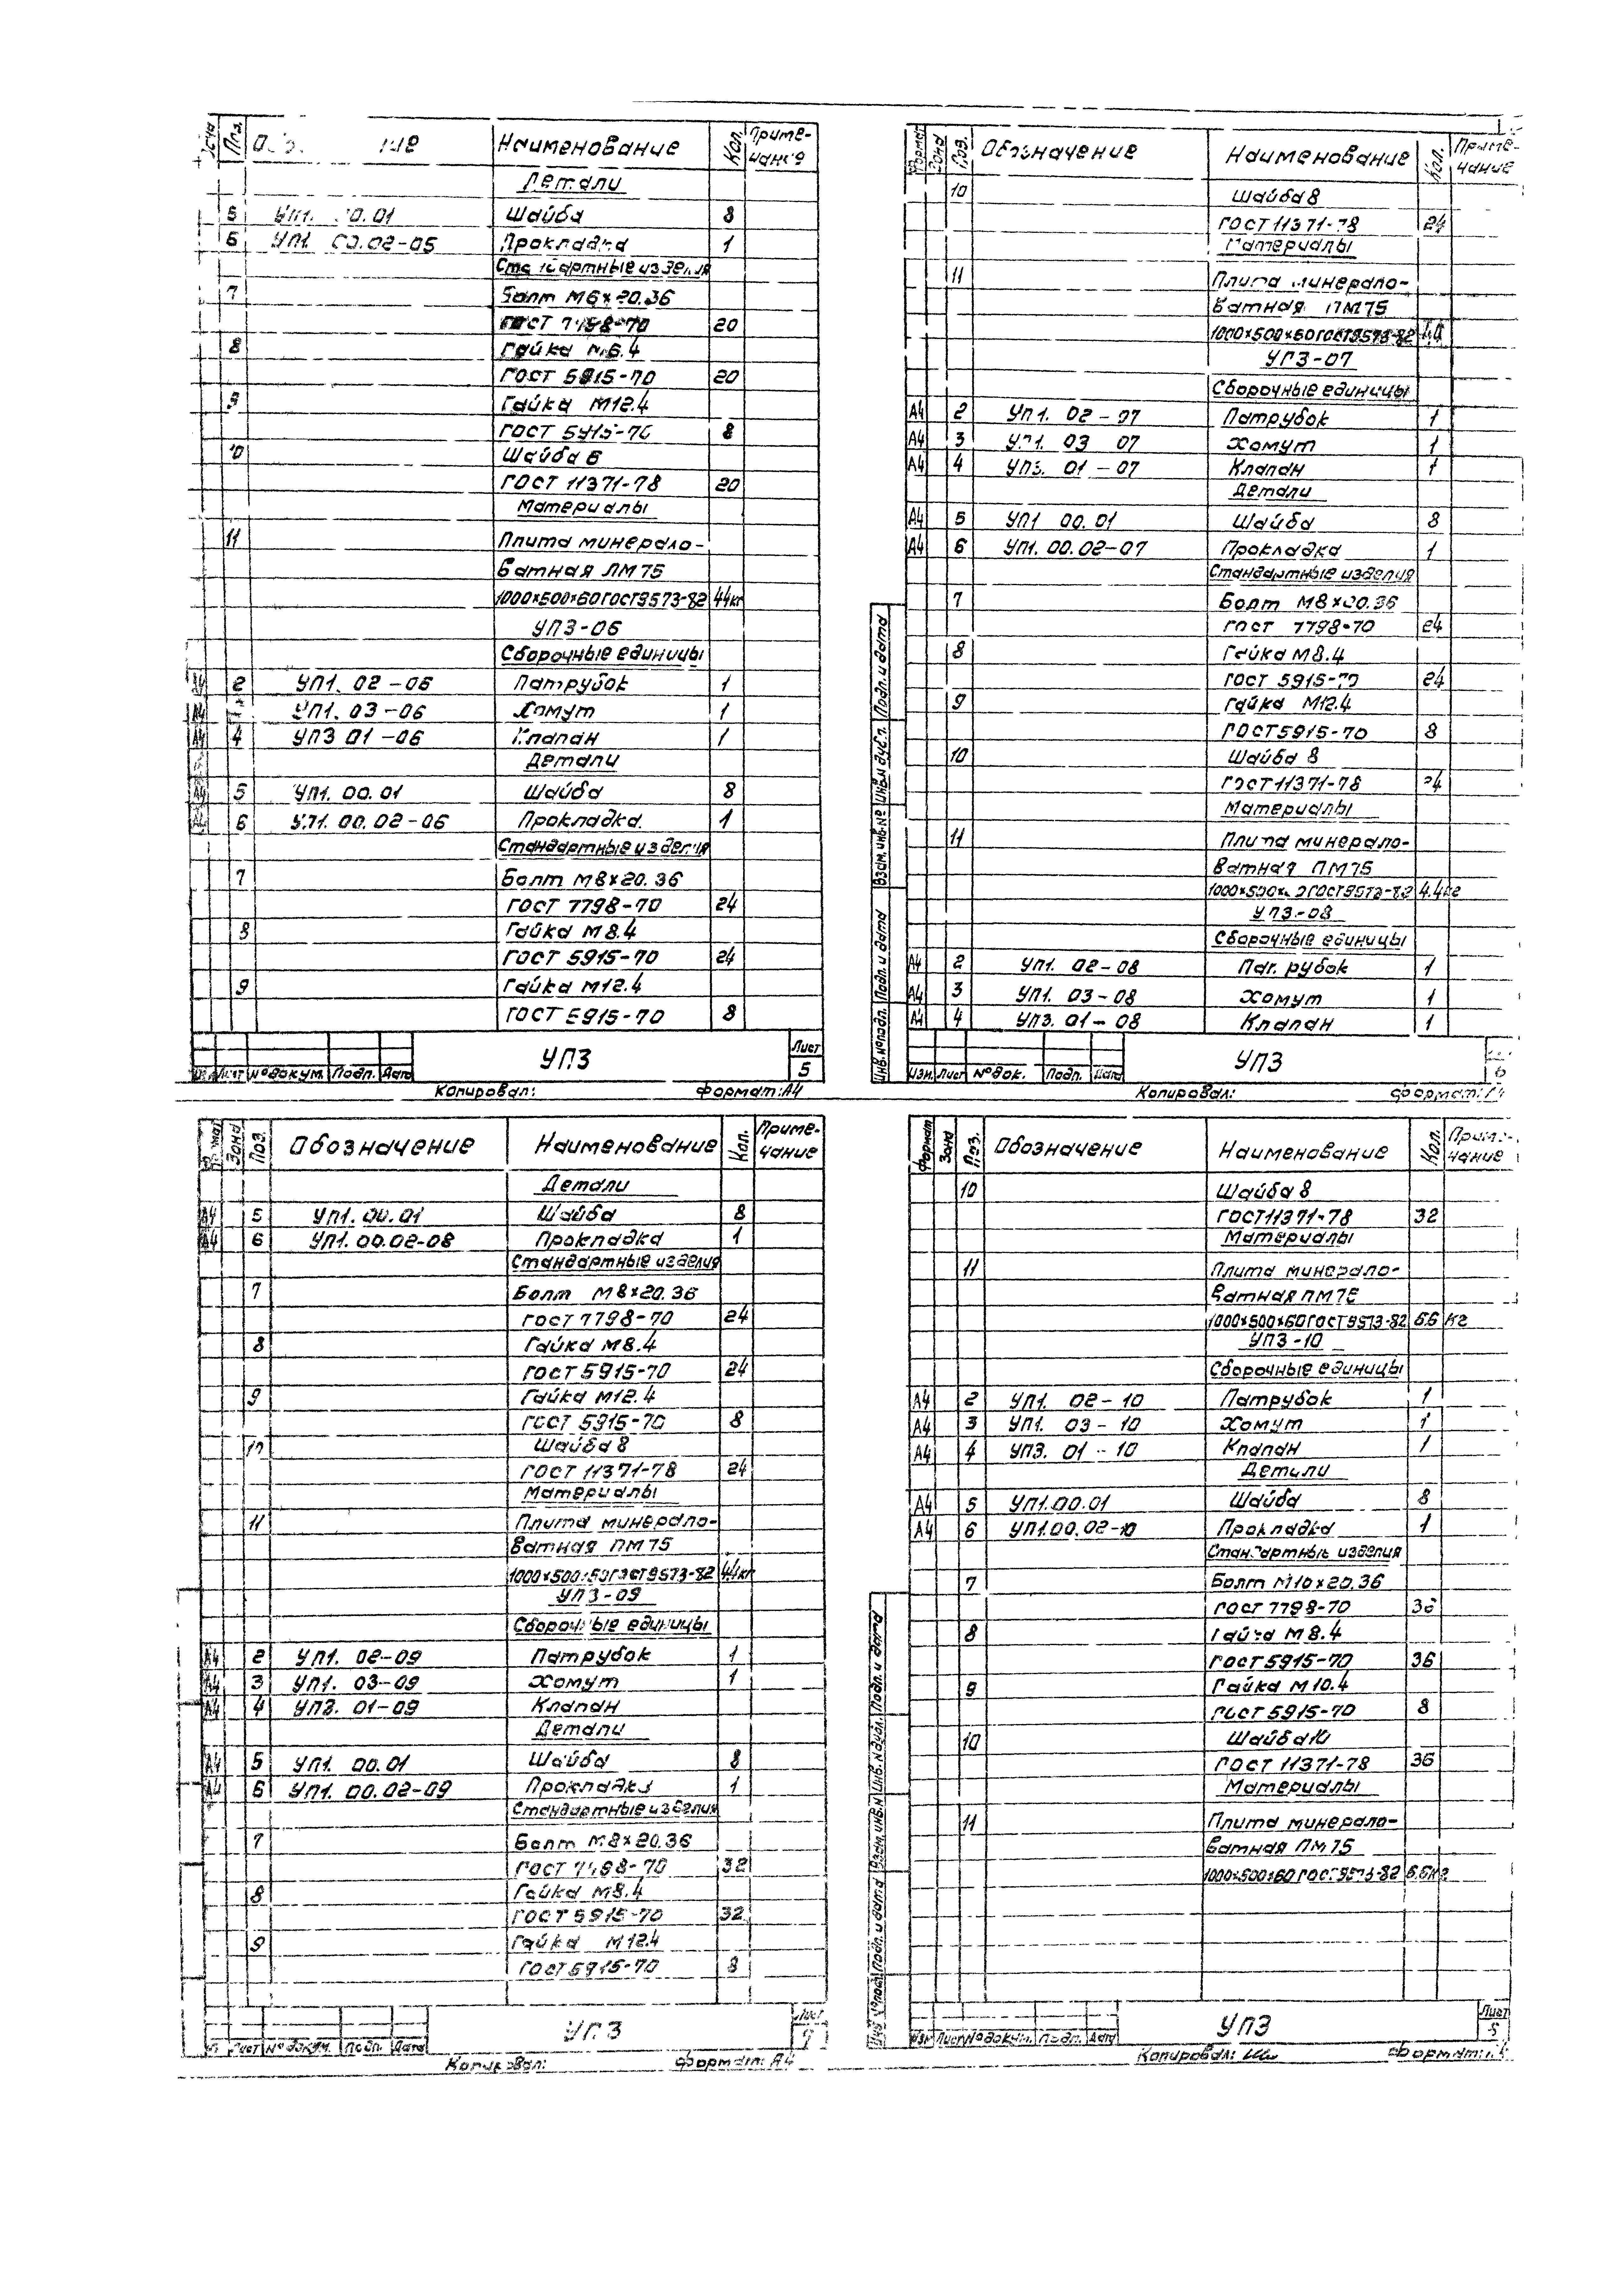 Поз. Наименование Кол. Приме-
чание
Детали
5 УП1. 00.01 Шайба 8
6 УП1 00.02-05 Прокладка 1
Стандартные изделия
7 Болт М6×20.36
ГОСТ 7798-70 20
8 Гайка М6.4
ГОСТ 5915-70 20
9 Гайка М12.4
ГОСТ 5915-70 8
10 Шайба 6
ГОСТ 11371-78 20
Материалы
11 Плита минерало-
ватная ПМ75
1000×500×60 ГОСТ9573-82 4,4кг
УП3-06
Сборочные единицы
А4 2 УП1. 02-06 Патрубок 1
А4 УП1. 03-06 Хомут 1
А4 4 УП3 01-06 Клапан 1
Детали
А4 5 УП1. 00.01 Шайба 8
А4 6 УП1. 00.02-06 Прокладка 1
Стандартные изделия
7 Болт М8×20.36
ГОСТ 7798-70 24
8 Гайка М8.4
ГОСТ 5915-70 24
9 Гайка М12.4
ГОСТ 5915-70 8
Лист № докум. Подп. Дата УП3 Лист 5
Копировал: Формат: А4
Формат Зона Поз. Обозначение Наименование Кол. Приме-
чание
10 Шайба 8
ГОСТ 11371-78 24
Материалы
11 Плита минерало-
ватная ПМ75
1000×500×60 ГОСТ9573-82 4,4
УП3-07
Сборочные единицы
А4 2 УП1. 02-07 Патрубок 1
А4 3 УП1. 03 07 Хомут 1
А4 4 УП3. 01-07 Клапан 1
Детали
А4 5 УП1 00.01 Шайба 8
А4 6 УП1. 00.02-07 Прокладка 1
Стандартные изделия
7 Болт М8×20.36
ГОСТ 7798-70 24
8 Гайка М8.4
ГОСТ 5915-70 24
9 Гайка М12.4
ГОСТ5915-70 8
10 Шайба 8
ГОСТ11371-78 24
Материалы
11 Плита минерало-
ватная ПМ75
1000×500×60 ГОСТ9573-82 4.4кг
УП3-08
Сборочные единицы
А4 2 УП1. 02-08 Патрубок 1
А4 3 УП1. 03-08 Хомут 1
А4 4 УП3. 01-08 Клапан 1
Инв. № подл. Подп. и дата Взам. инв. № Инв. № дубл. Подп. и дата
Изм. Лист № док. Подп. Дата УП3 6
Копировал: Формат: А4
Формат Зона Поз. Обозначение Наименование Кол. Приме-
чание
Детали
А4 5 УП1. 00.01 Шайба 8
А4 6 УП1. 00.02-08 Прокладка 1
Стандартные изделия
7 Болт М8×20.36
ГОСТ 7798-70 24
8 Гайка М8.4
ГОСТ 5915-70 24
9 Гайка М12.4
ГОСТ 5915-70 8
10 Шайба 8
ГОСТ 11371-78 24
Материалы
11 Плита минерало-
ватная ПМ75
1000×500×60 ГОСТ9573-82 4,4кг
УП3-09
Сборочные единицы
А4 2 УП1. 02-09 Патрубок 1
А4 3 УП1. 03-09 Хомут 1
А4 4 УП3. 01-09 Клапан
Детали
А4 5 УП1. 00.01 Шайба 8
А4 6 УП1. 00.02-09 Прокладка 1
Стандартные изделия
7 Болт М8×20.36
ГОСТ 7798-70 32
8 Гайка М8.4
ГОСТ 5915-70 32
9 Гайка М12.4
ГОСТ 5915-70 8
Лист № докум. Подп. Дата УП3 Лист 7
Копировал: Формат: А4
Формат Зона Поз. Обозначение Наименование Кол. Приме-
чание
10 Шайба 8
ГОСТ11371-78 32
Материалы
11 Плита минерало-
ватная ПМ75
1000×500×60 ГОСТ9573-82 6.6 кг
УП3-10
Сборочные единицы
А4 2 УП1. 02-10 Патрубок 1
А4 3 УП1. 03-10 Хомут 1
А4 4 УП3. 01-10 Клапан 1
Детали
А4 5 УП1.00.01 Шайба 8
А4 6 УП1.00.02-10 Прокладка 1
Стандартные изделия
7 Болт М10×20.36
ГОСТ 7798-70 36
8 Гайка М8.4
ГОСТ5915-70 36
9 Гайка М10.4
ГОСТ5915-70 8
10 Шайба 10
ГОСТ 11371-78 36
Материалы
11 Плита минерало-
ватная ПМ75
1000×500×60 ГОСТ9573-82 6.6кг
Подп. и дата Взам. инв. № Инв. № дубл. Подп. и дата
Изм Лист № докум. Подп. Дата УП3 Лист
Копировал: Формат: